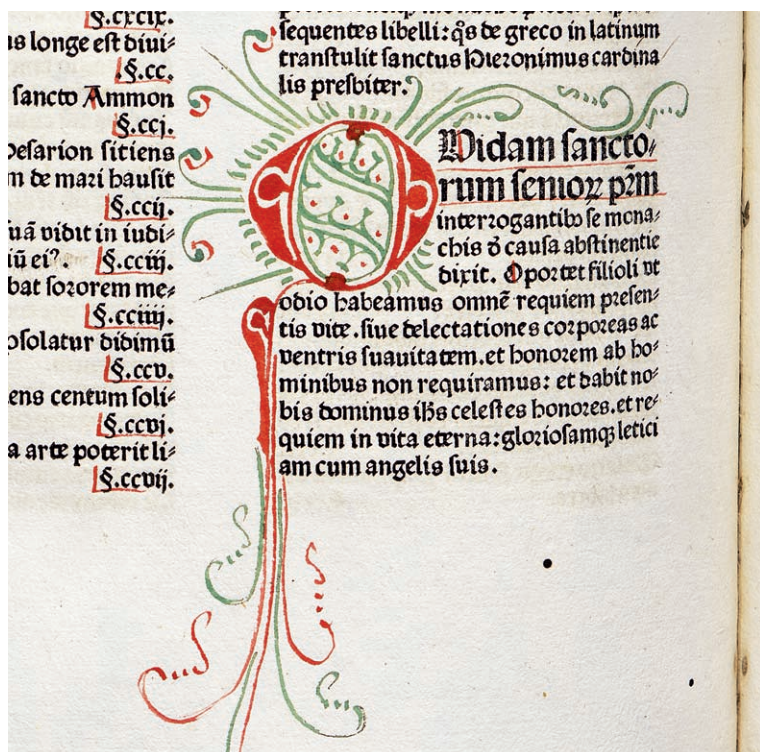 §.cxcix.
us longe est diui⸗
.§.cc.
sancto Ammon
.§.ccj.
besarion sitiens
m de mari hausit
§.ccij.
suā vidit in iudi⸗
iū eiꝰ. §.cciij.
bat sororem me⸗
§.cciiij.
osolatur didimū
§.ccv.
ens centum soli⸗
§.ccvj.
a arte poterit li⸗
§.ccvij.
sequentes libelli: q̄s de greco in latinum
transtulit sanctus Hieronimus cardina
lis presbiter.
QVidam sancto⸗
rum senioꝝ pr̄m
interrogantibꝰ se mona⸗
chis ō causa abstinentie
dixit. Oportet filioli vt
odio habeamus omnē requiem presen⸗
tis vite. siue delectationes corporeas ac
ventris suauitatem. et honorem ab ho⸗
minibus non requiramus: et dabit no⸗
bis dominus ih̄s celestes honores. et re⸗
quiem in vita eterna: gloriosamqꝫ letici
am cum angelis suis.